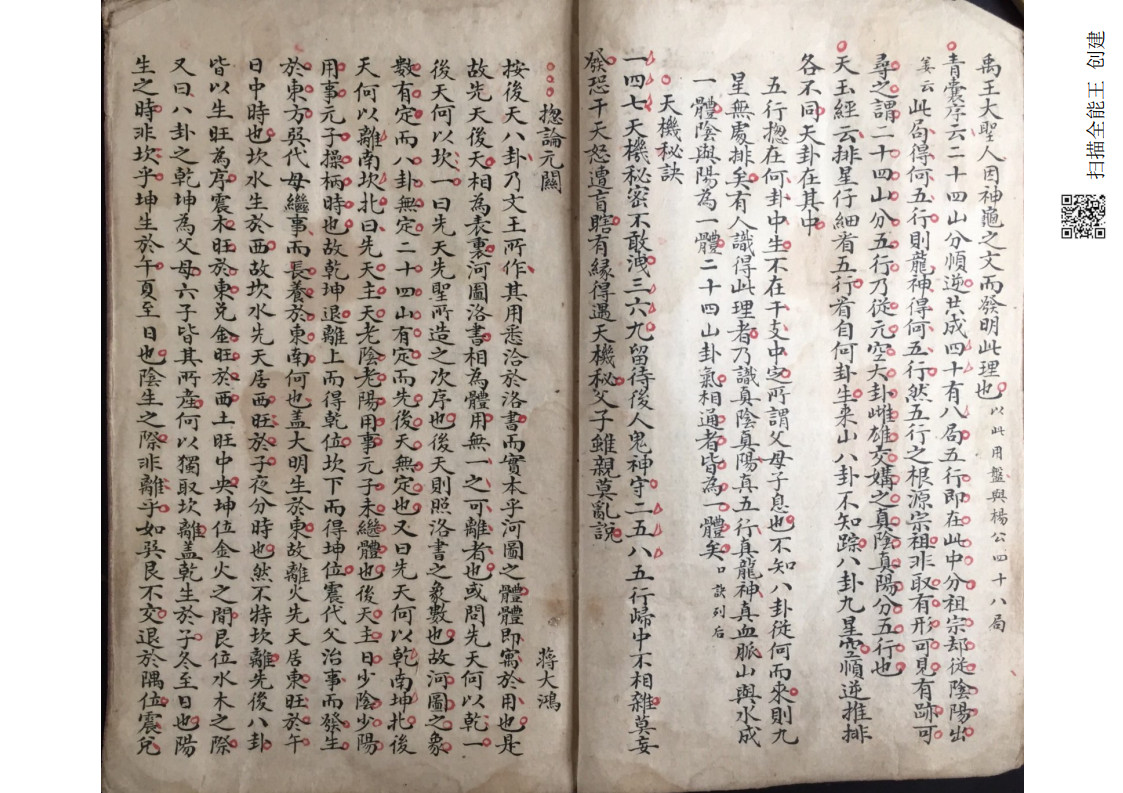 禹王大聖人因神龜之文而發明此理也以此用盤與楊公四十八局
青囊序云二十四山分順逆共成四十有八局五行即在此中分祖宗却從陰陽出
姜云此局得何五行則龍神得何五行然五行之根源宗祖非取有形可見有跡可
尋之謂二十四山分五行乃從元空大卦雌雄交媾之真陰真陽分五行也
天玉經云排星仔細看五行看自何卦生来山八卦不知踪八卦九星空順逆推排
各不同天卦在其中
五行揔在何卦中生不在干支中定所謂父母子息也不知八卦從何而來則九
星無處排矣有人識得此理者乃識真陰真陽真五行真龍神真血脈山與水成
一體陰與陽為一體二十四山卦氣相通者皆為一體矣口訣列后
天機秘訣
一四七天機秘密不敢洩三六九留待後人鬼神守二五八五行歸中不相雜莫妄
發恐干天怒遭盲瞎有縁得遇天機秘父子雖親莫亂說
揔論元關 蔣大鴻
按後天八卦乃文王所作其用悉洽於洛書而實本乎河圖之體體即寓於用也是
故先天後天相為表裏河圖洛書相為體用無一之可離者也或問先天何以乾一
後天何以坎一曰先天先聖所造之次序也後天則照洛書之象數也故河圖之象
數有定而八卦無定二十四山有定而先後天無定也又曰先天何以乾南坤北後
天何以離南坎北曰先天主天老陰老陽用事元子未繼體也後天主日少陰少陽
用事元子操柄時也故乾坤退離上而得乾位坎下而得坤位震代父治事而發生
於東方巽代母繼事而長養於東南何也盖大明生於東故離火先天居東旺於午
日中時也坎水生於西故坎水先天居西旺於子夜分時也然不特坎離先後八卦
皆以生旺為序震木旺於東兑金旺於西土旺中央坤位金火之間艮位水木之際
又曰八卦之乾坤為父母六子皆其所產何以獨取坎離盖乾生於子冬至日也陽
生之時非坎乎坤生於午夏至日也陰生之際非離乎如巽艮不交退於隅位震兌
扫描全能王 创建